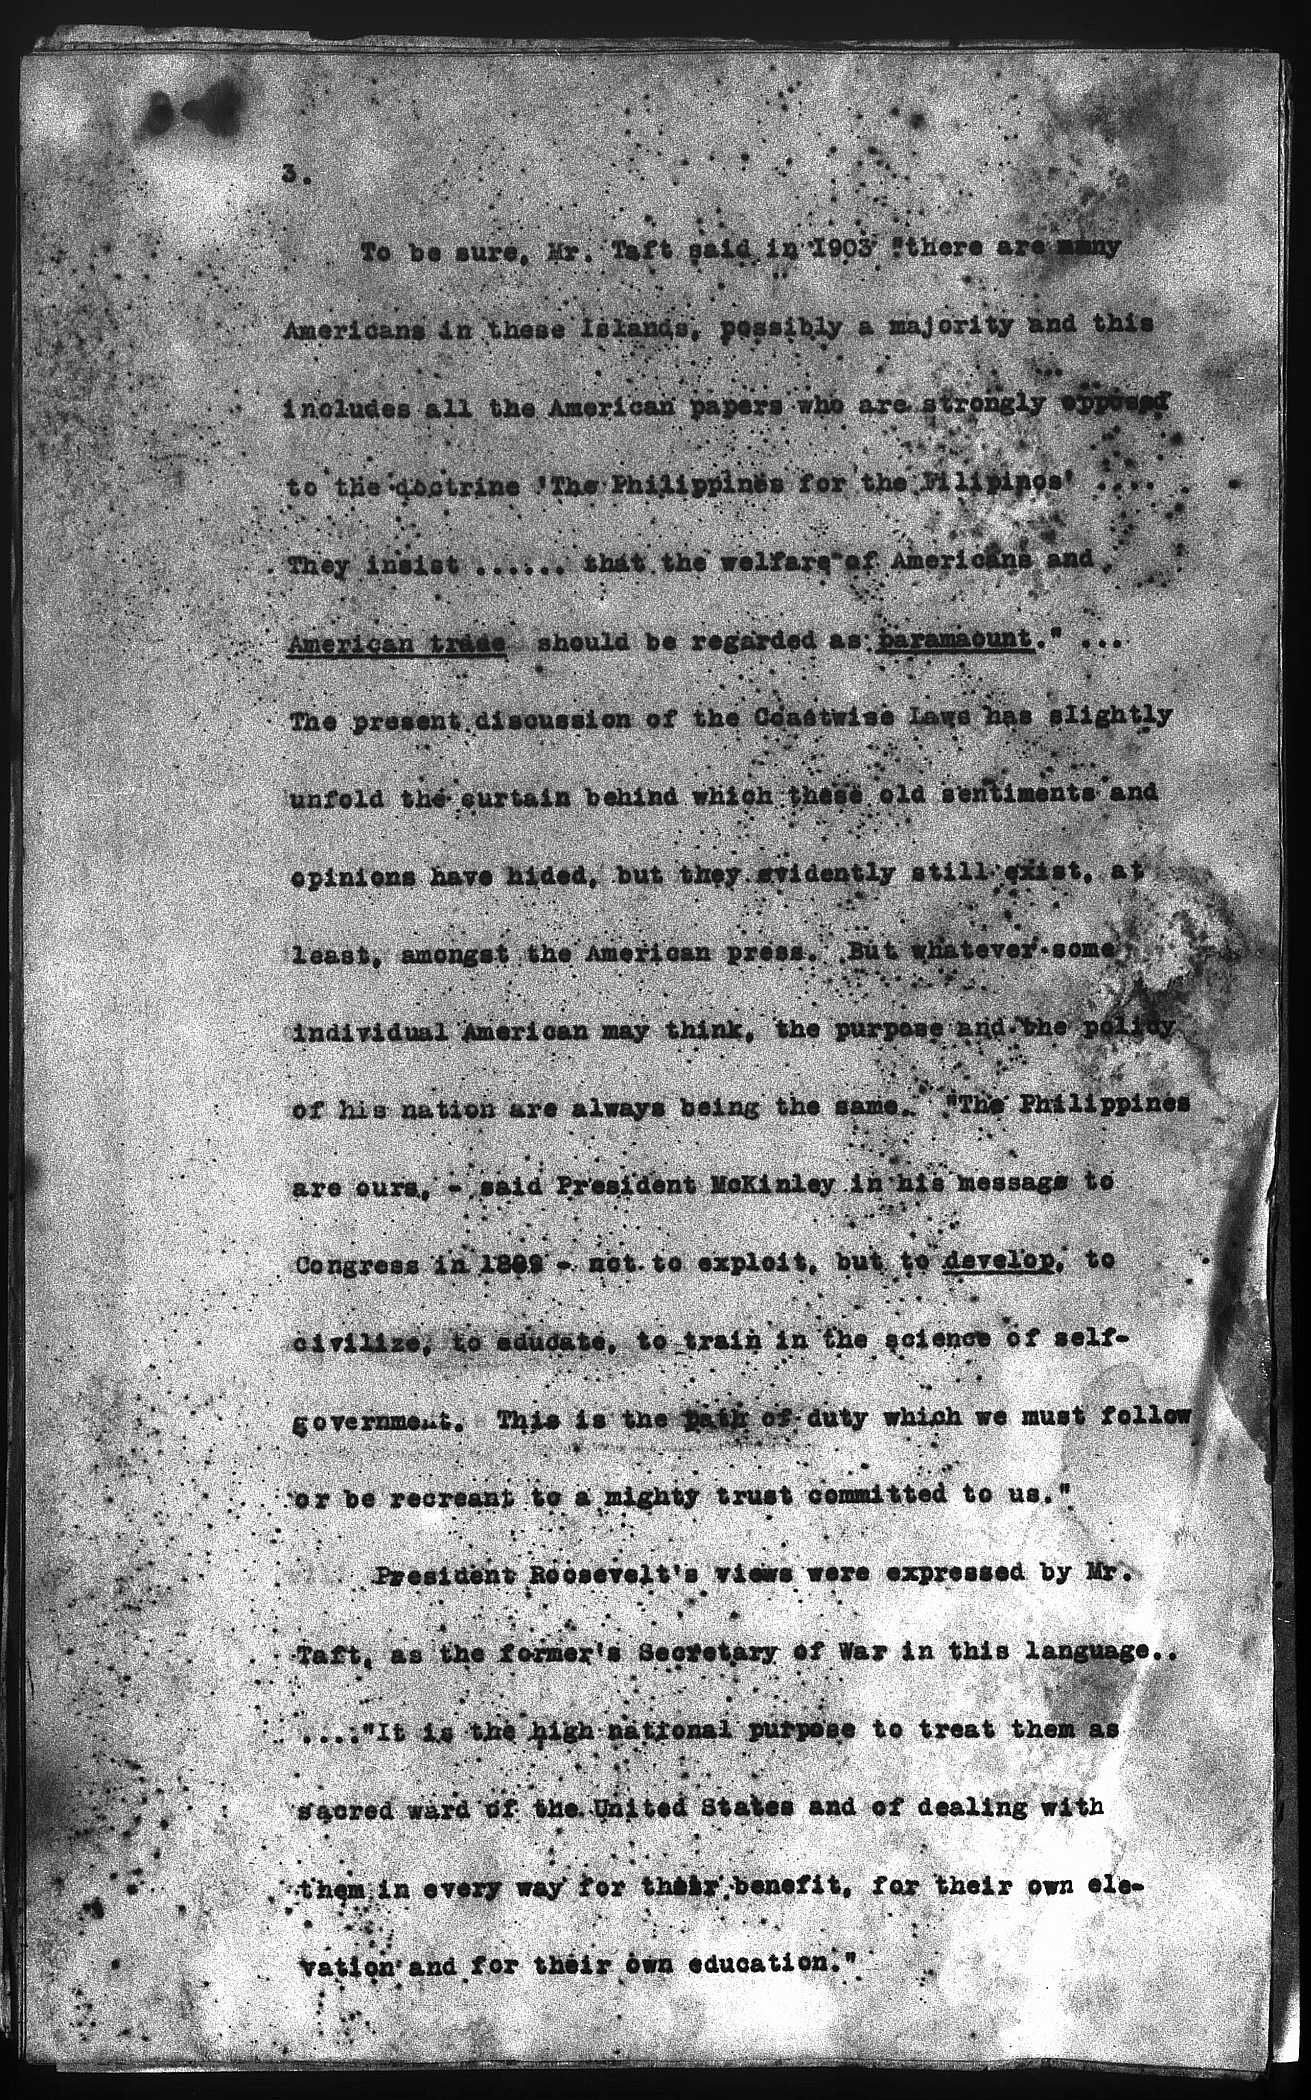 3.
To be sure, Mr. Taft said in 1903 "there are many
Americans in these Islands, possibly a majority and this
includes all the American papers who are strongly opposed
to the doctrine 'The Philippines for the Filipinos' ....
They insist ...... that the welfare of Americans and
American trade should be regarded as paramount." ...
The present discussion of the Coastwise Laws has slightly
unfold the curtain behind which these old sentiments and
opinions have hided, but they evidently still exist, at
least, amongst the American press. But whatever some
individual American may think, the purpose and the policy
of his nation are always being the same. "The Philippines
are ours, - said President McKinley in his message to
Congress in 1899 - not to exploit, but to develop, to
civilize, to educate, to train in the science of self-
government. This is the path of duty which we must follow
or be recreant to a mighty trust committed to us."
President Roosevelt's views were expressed by Mr.
Taft, as the former's Secretary of War in this language..
...."It is the high national purpose to treat them as
sacred ward of the United States and of dealing with
them in every way for their benefit, for their own ele-
vation and for their own education."